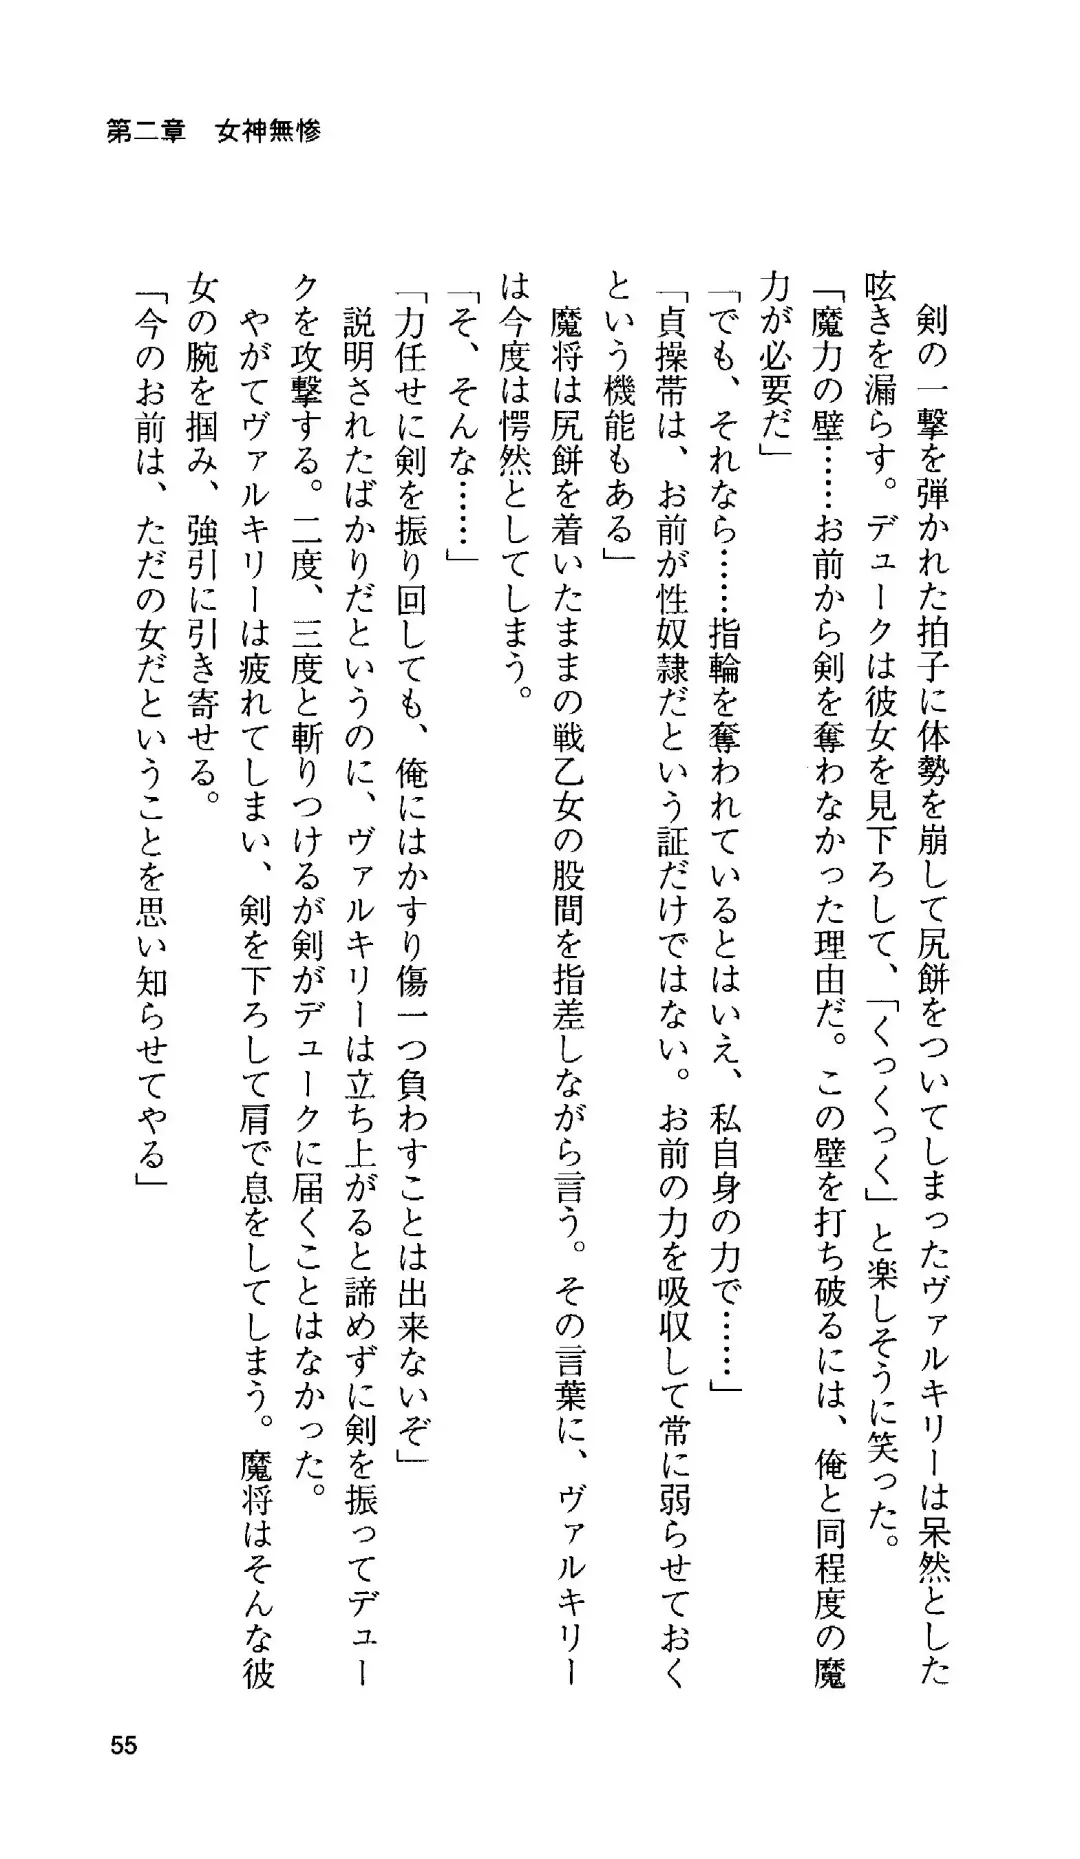 第二章　女神無惨
　剣の一撃を弾かれた拍子に体勢を崩して尻餅をついてしまったヴァルキリーは呆然とした
呟きを漏らす。デュークは彼女を見下ろして、「くっくっく」と楽しそうに笑った。
「魔力の壁……お前から剣を奪わなかった理由だ。この壁を打ち破るには、俺と同程度の魔
力が必要だ」
「でも、それなら……指輪を奪われているとはいえ、私自身の力で……」
「貞操帯は、お前が性奴隷だという証だけではない。お前の力を吸収して常に弱らせておく
という機能もある」
　魔将は尻餅を着いたままの戦乙女の股間を指差しながら言う。その言葉に、ヴァルキリー
は今度は愕然としてしまう。
「そ、そんな……」
「力任せに剣を振り回しても、俺にはかすり傷一つ負わすことは出来ないぞ」
　説明されたばかりだというのに、ヴァルキリーは立ち上がると諦めずに剣を振ってデュー
クを攻撃する。二度、三度と斬りつけるが剣がデュークに届くことはなかった。
　やがてヴァルキリーは疲れてしまい、剣を下ろして肩で息をしてしまう。魔将はそんな彼
女の腕を掴み、強引に引き寄せる。
「今のお前は、ただの女だということを思い知らせてやる」
55